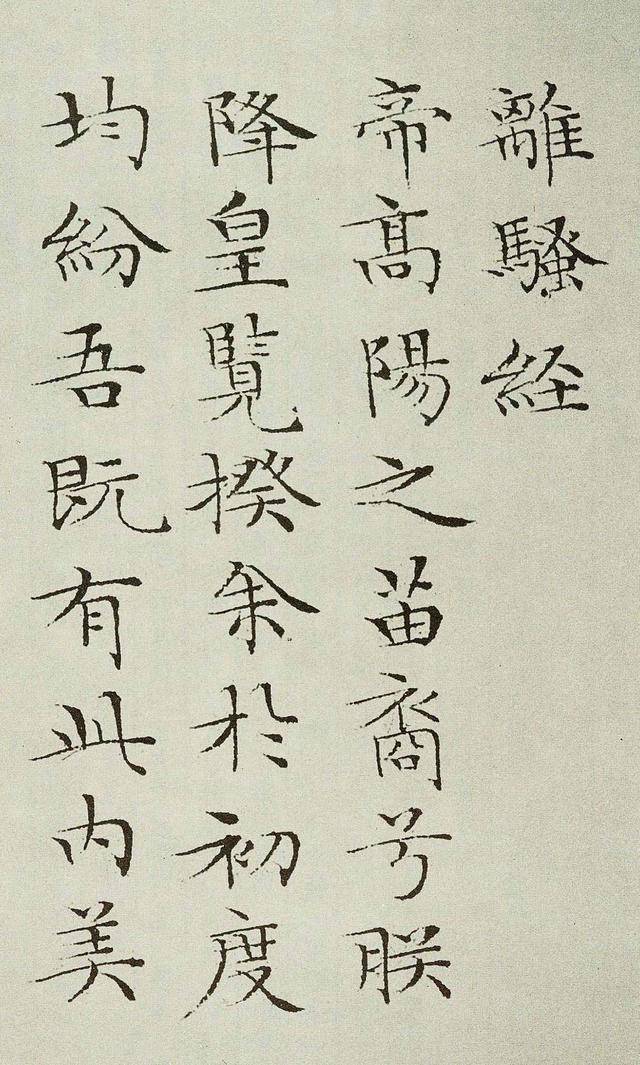 離騷経
帝髙陽之苗裔兮朕
降皇覽揆余於初度
均紛吾既有此内美